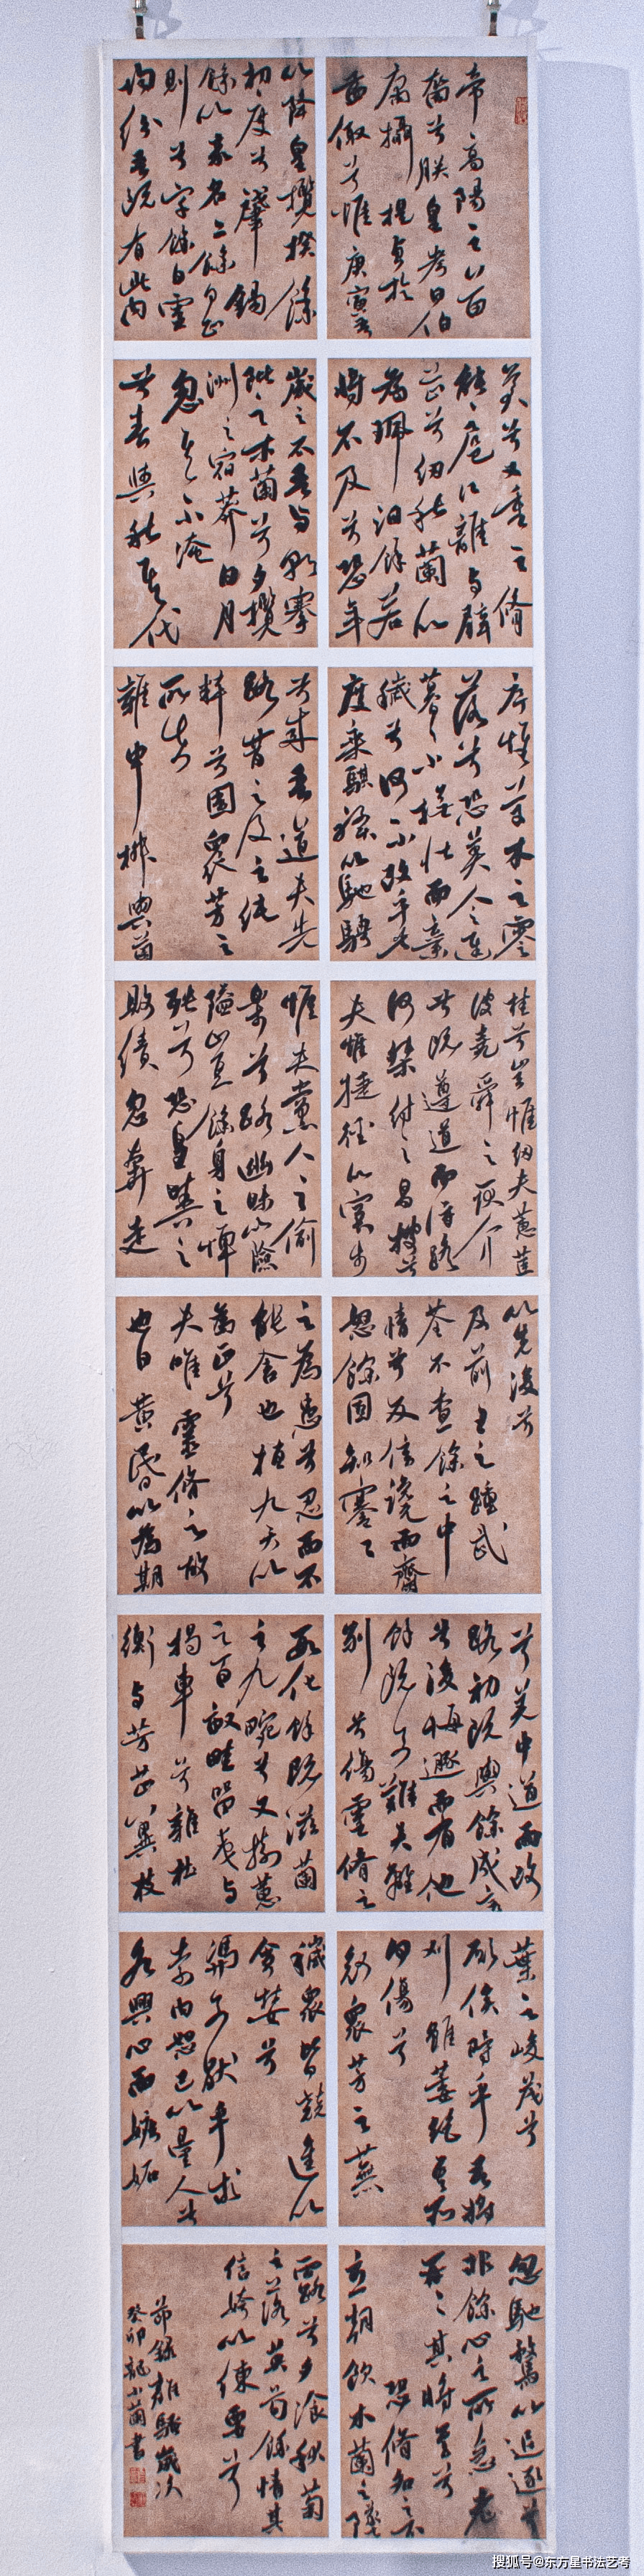 帝高陽之苗
裔兮朕皇考曰伯
庸攝提貞於
孟陬兮惟庚寅吾
以降皇攬揆餘
初度兮肇錫
餘以嘉名名餘曰正
則兮字餘曰靈
均紛吾既有此內
美兮又重之脩
能扈江離與辟
芷兮紉秋蘭以
為珮汩餘若
將不及兮恐年
歲之不吾與朝搴
阰之木蘭兮夕攬
洲之宿莽日月
忽其不淹
兮春與秋其代
序惟草木之零
落兮恐美人之遲
暮不撫壯而棄
穢兮何不改乎此
度乘騏驥以馳騁
兮來吾道夫先
路昔三后之純
粹兮固眾芳之
所在
雜申椒與菌
桂兮豈惟紉夫蕙茝
彼堯舜之耿介
兮既遵道而得路
何桀紂之昌披兮
夫惟捷徑以窘步
惟夫黨人之偷
樂兮路幽昧以險
隘豈餘身之憚
殃兮恐皇輿之
敗績忽奔走
以先後兮
及前王之踵武
荃不查餘之中
情兮反信讒而齌
怒餘固知謇〻
之為患兮忍而不
能舍也指九天以
為正兮
夫唯靈脩之故
也曰黃昏以為期
兮羌中道而改
路初既與餘成言
兮後悔遯而有他
餘既不難夫離
別兮傷靈脩之
數化餘既滋蘭
之九畹兮又樹蕙
之百畝畦留夷與
揭車兮雜杜
衡與芳芷冀枝
葉之峻茂兮
願俟時乎吾將
刈雖萎絕其亦
何傷兮
哀眾芳之蕪
穢眾皆競進以
貪婪兮
憑不猒乎求
索內恕己以量人兮
各興心而嫉妒
忽馳騖以追逐兮
非餘心之所急老
冉〻其將至兮
恐脩名之不
立朝飲木蘭之墜
露兮夕飡秋菊
之落英苟餘情其
信姱以練要兮
節錄離騷歲次
癸卯龍小蘭書
搜狐号@东方星书法艺考